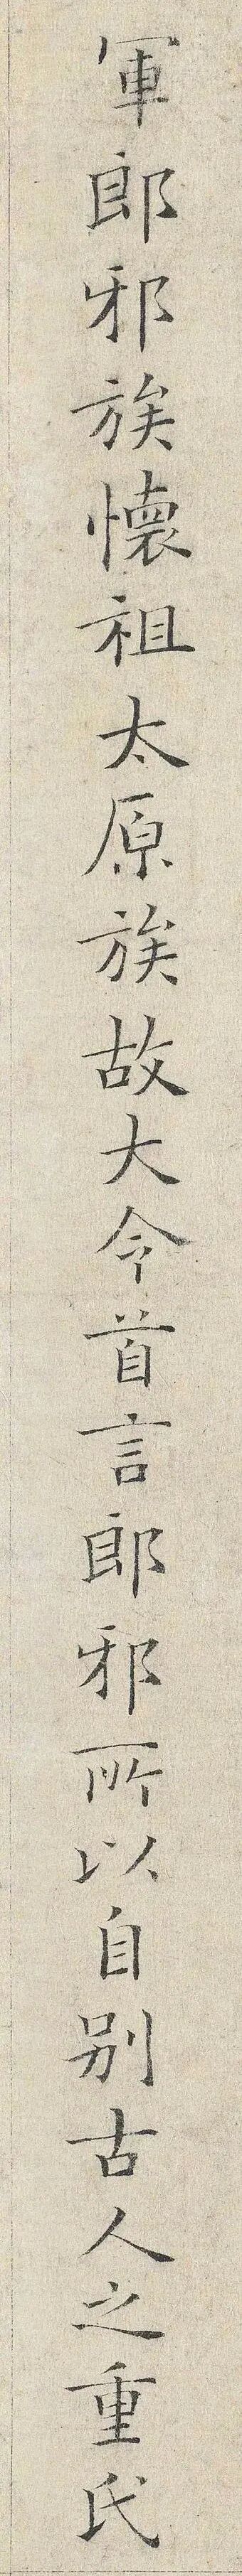 軍郎邪族懷祖太原族故大令首言郎邪所以自别古人之重氏